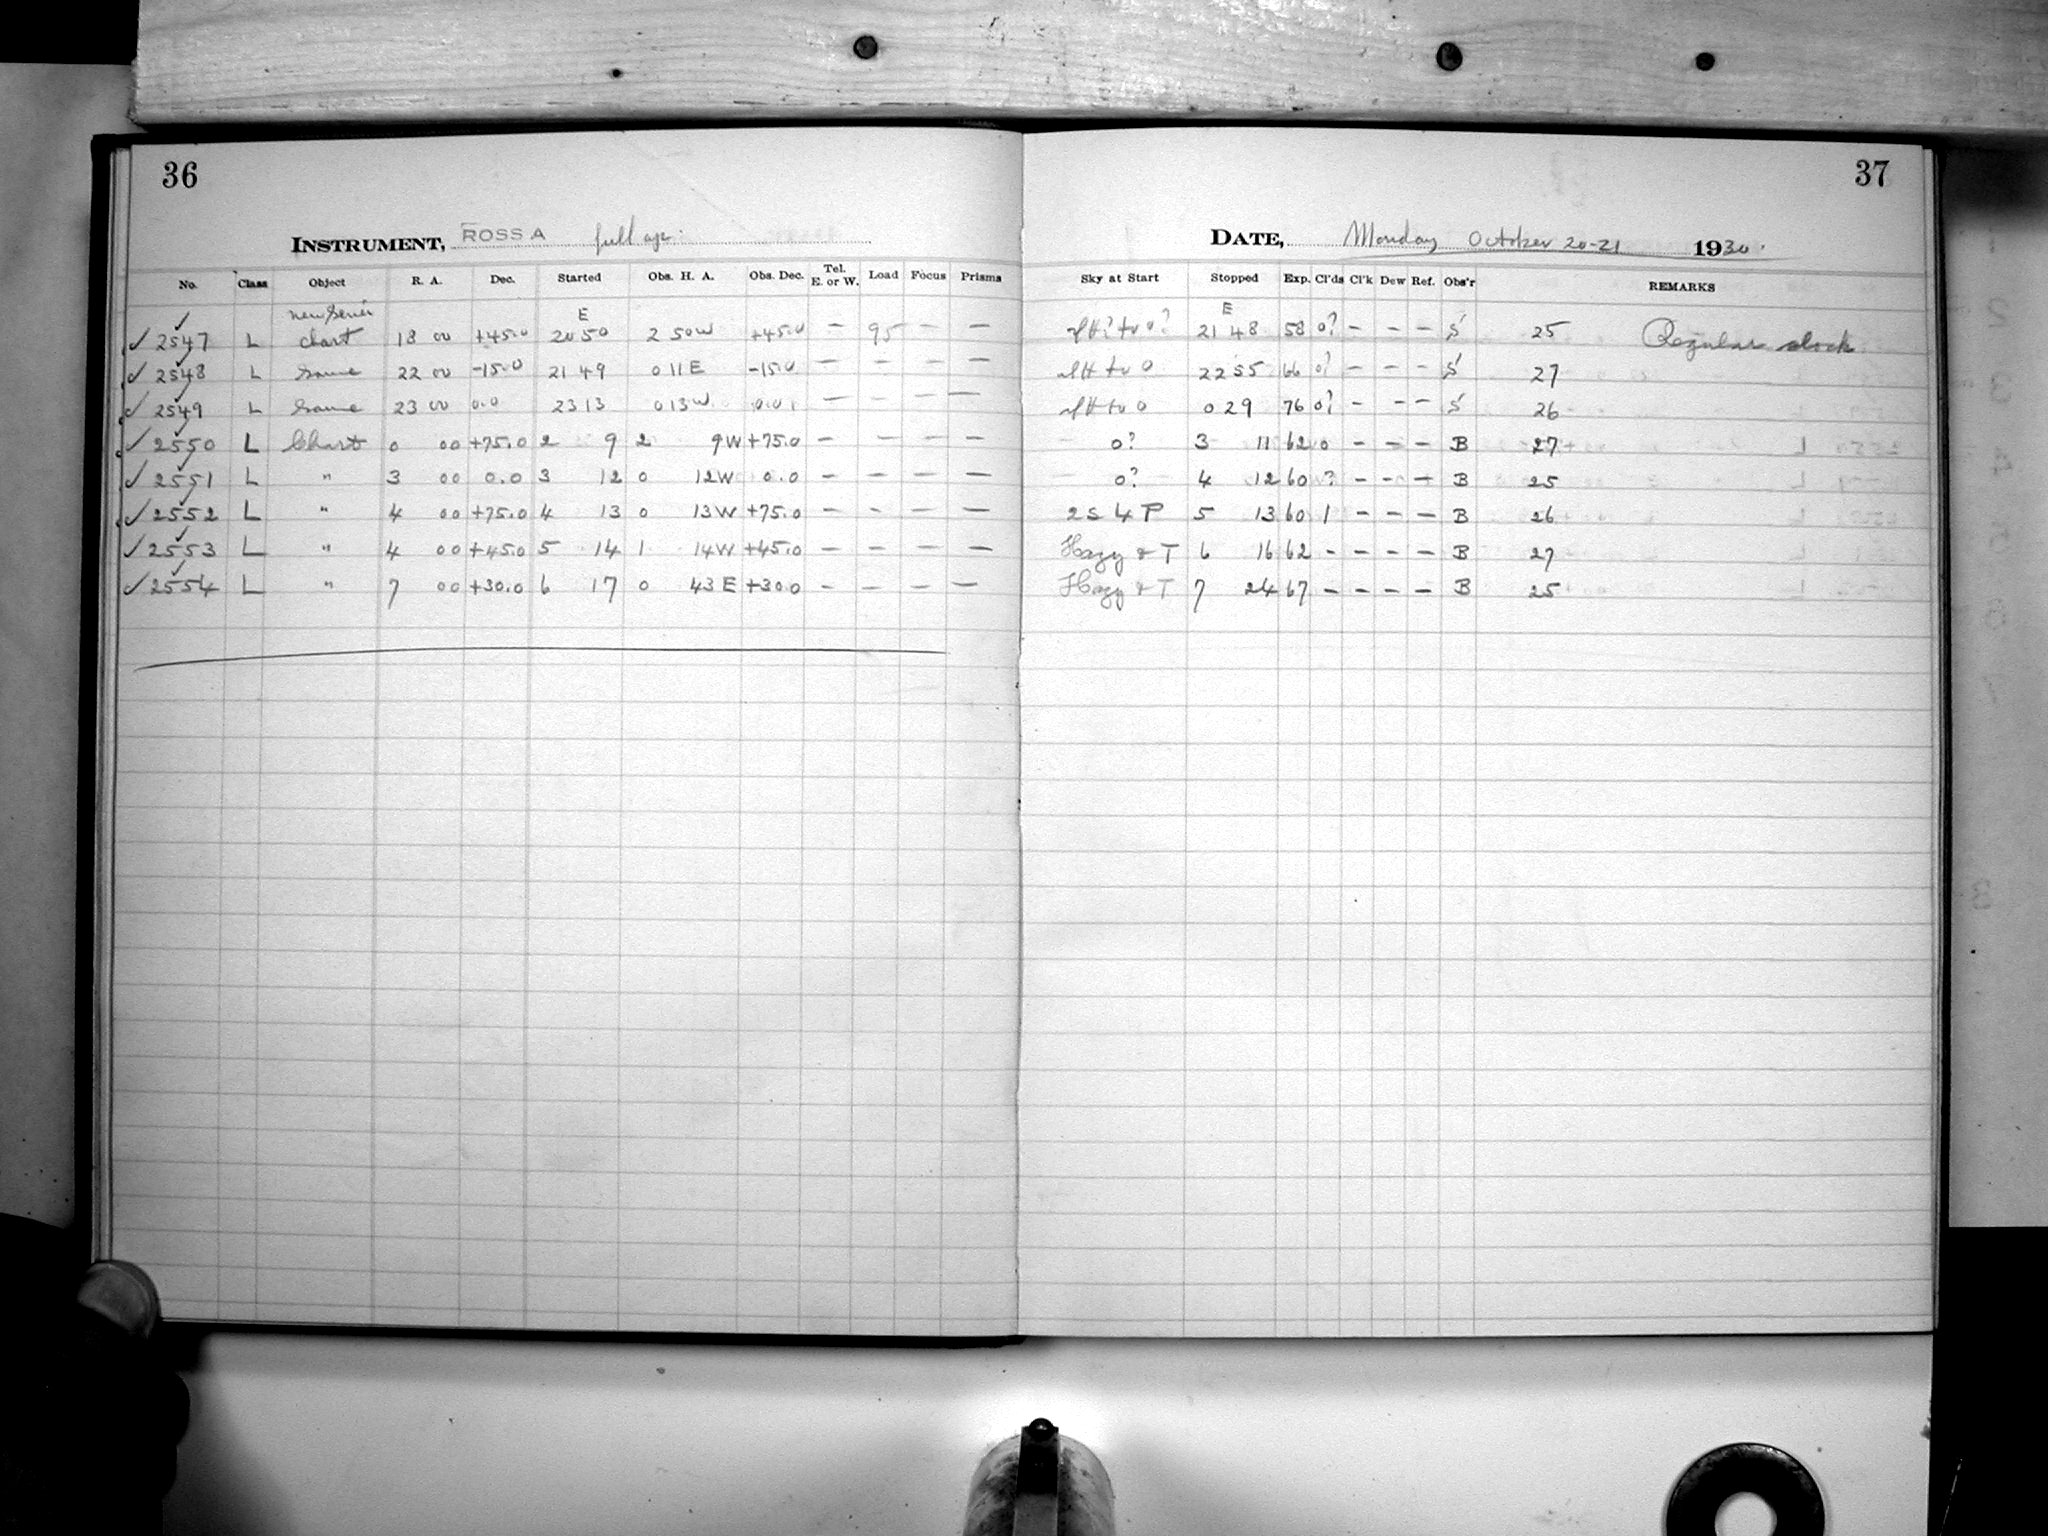 36
INSTRUMENT, ROSS A full ap.
No. Class Object R. A. Dec. Started Obs. H. A. Obs. Dec. Tel. E. or W. Load Focus Prisms
new series E
✓ 2547 L chart 18 00 +45.0 20 50 2 50 W +45.0 — 95 — —
✓ 2548 L same 22 00 -15.0 21 49 0 11 E -15.0 — — — —
✓ 2549 L same 23 00 0.0 23 13 0 13 W 0.0 — — — —
✓ 2550 L Chart 0 00 +75.0 2 9 2 9 W +75.0 — — — —
✓ 2551 L " 3 00 0.0 3 12 0 12 W 0.0 — — — —
✓ 2552 L " 4 00 +75.0 4 13 0 13 W +75.0 — — — —
✓ 2553 L " 4 00 +45.0 5 14 1 14 W +45.0 — — — —
✓ 2554 L " 7 00 +30.0 6 17 0 43 E +30.0 — — — —
37
DATE, Monday October 20-21 1930.
Sky at Start Stopped Exp. Cl'ds Cl'k Dew Ref. Obs'r REMARKS
E
to 0? 21 48 58 0? — — — S 25 Regular clock
to 0 22 55 66 0? — — — S 27
to 0 0 29 76 0? — — — S 26
0? 3 11 62 0 — — — B 27
0? 4 12 60 ? — — — B 25
2 S 4 P 5 13 60 1 — — — B 26
Hazy & T 6 16 62 — — — — B 27
Hazy & T 7 24 67 — — — — B 25